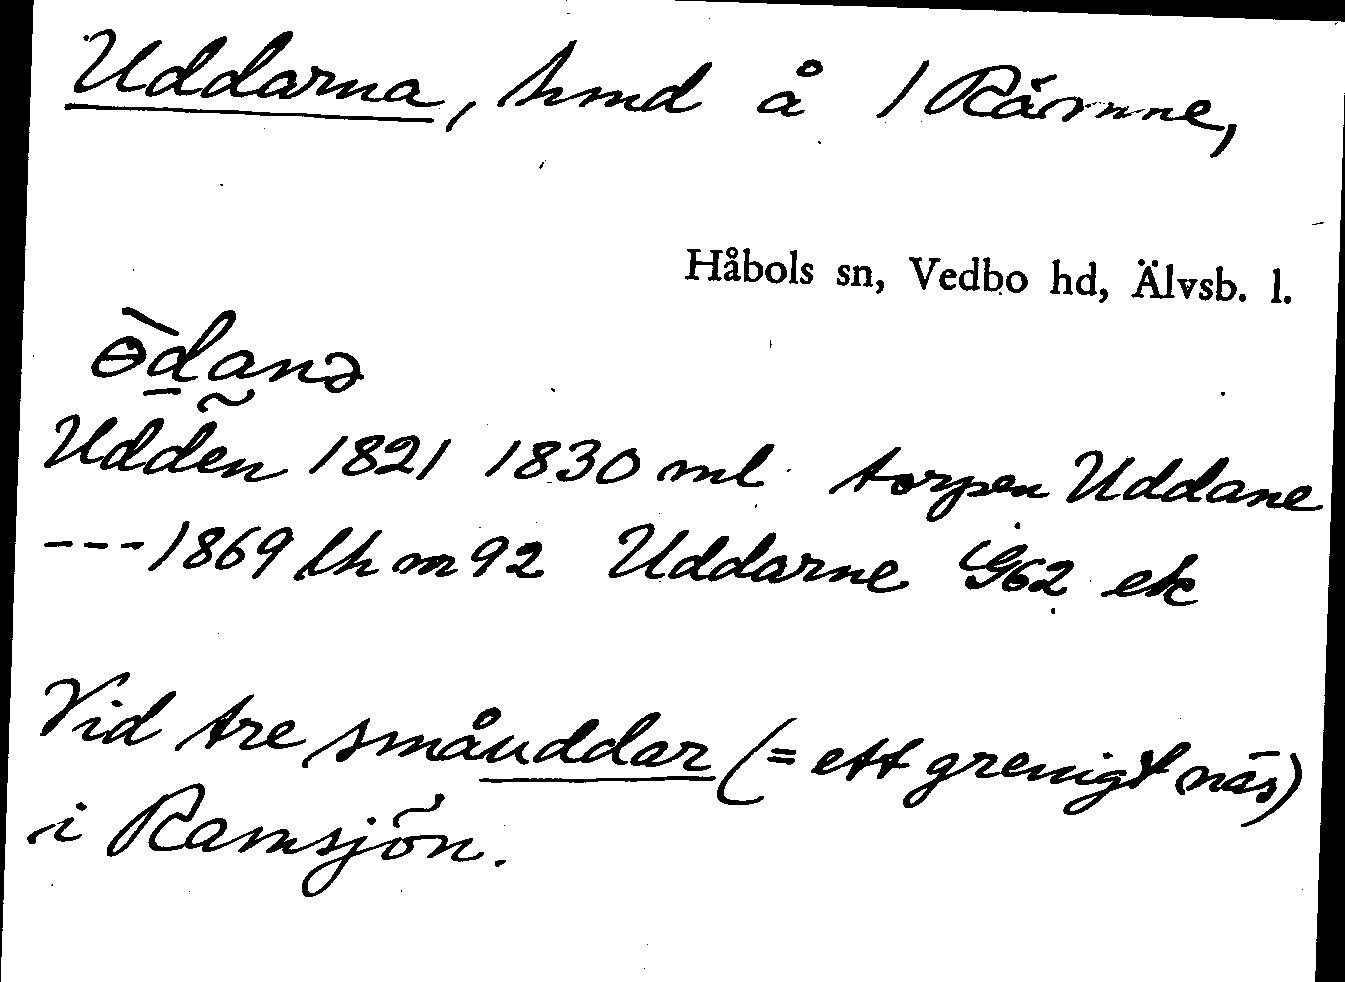 Uddarna, hmd å 1 Rämne,
Håbols sn, Vedbo hd, Älvsb. l.
ɵ̀danə
Udden 1821 1830 ml torpen Uddane
---1869 lh m 92 Uddarne G62 ek
Vid tre småuddar (= ett grenigt näs)
i Ramsjön.